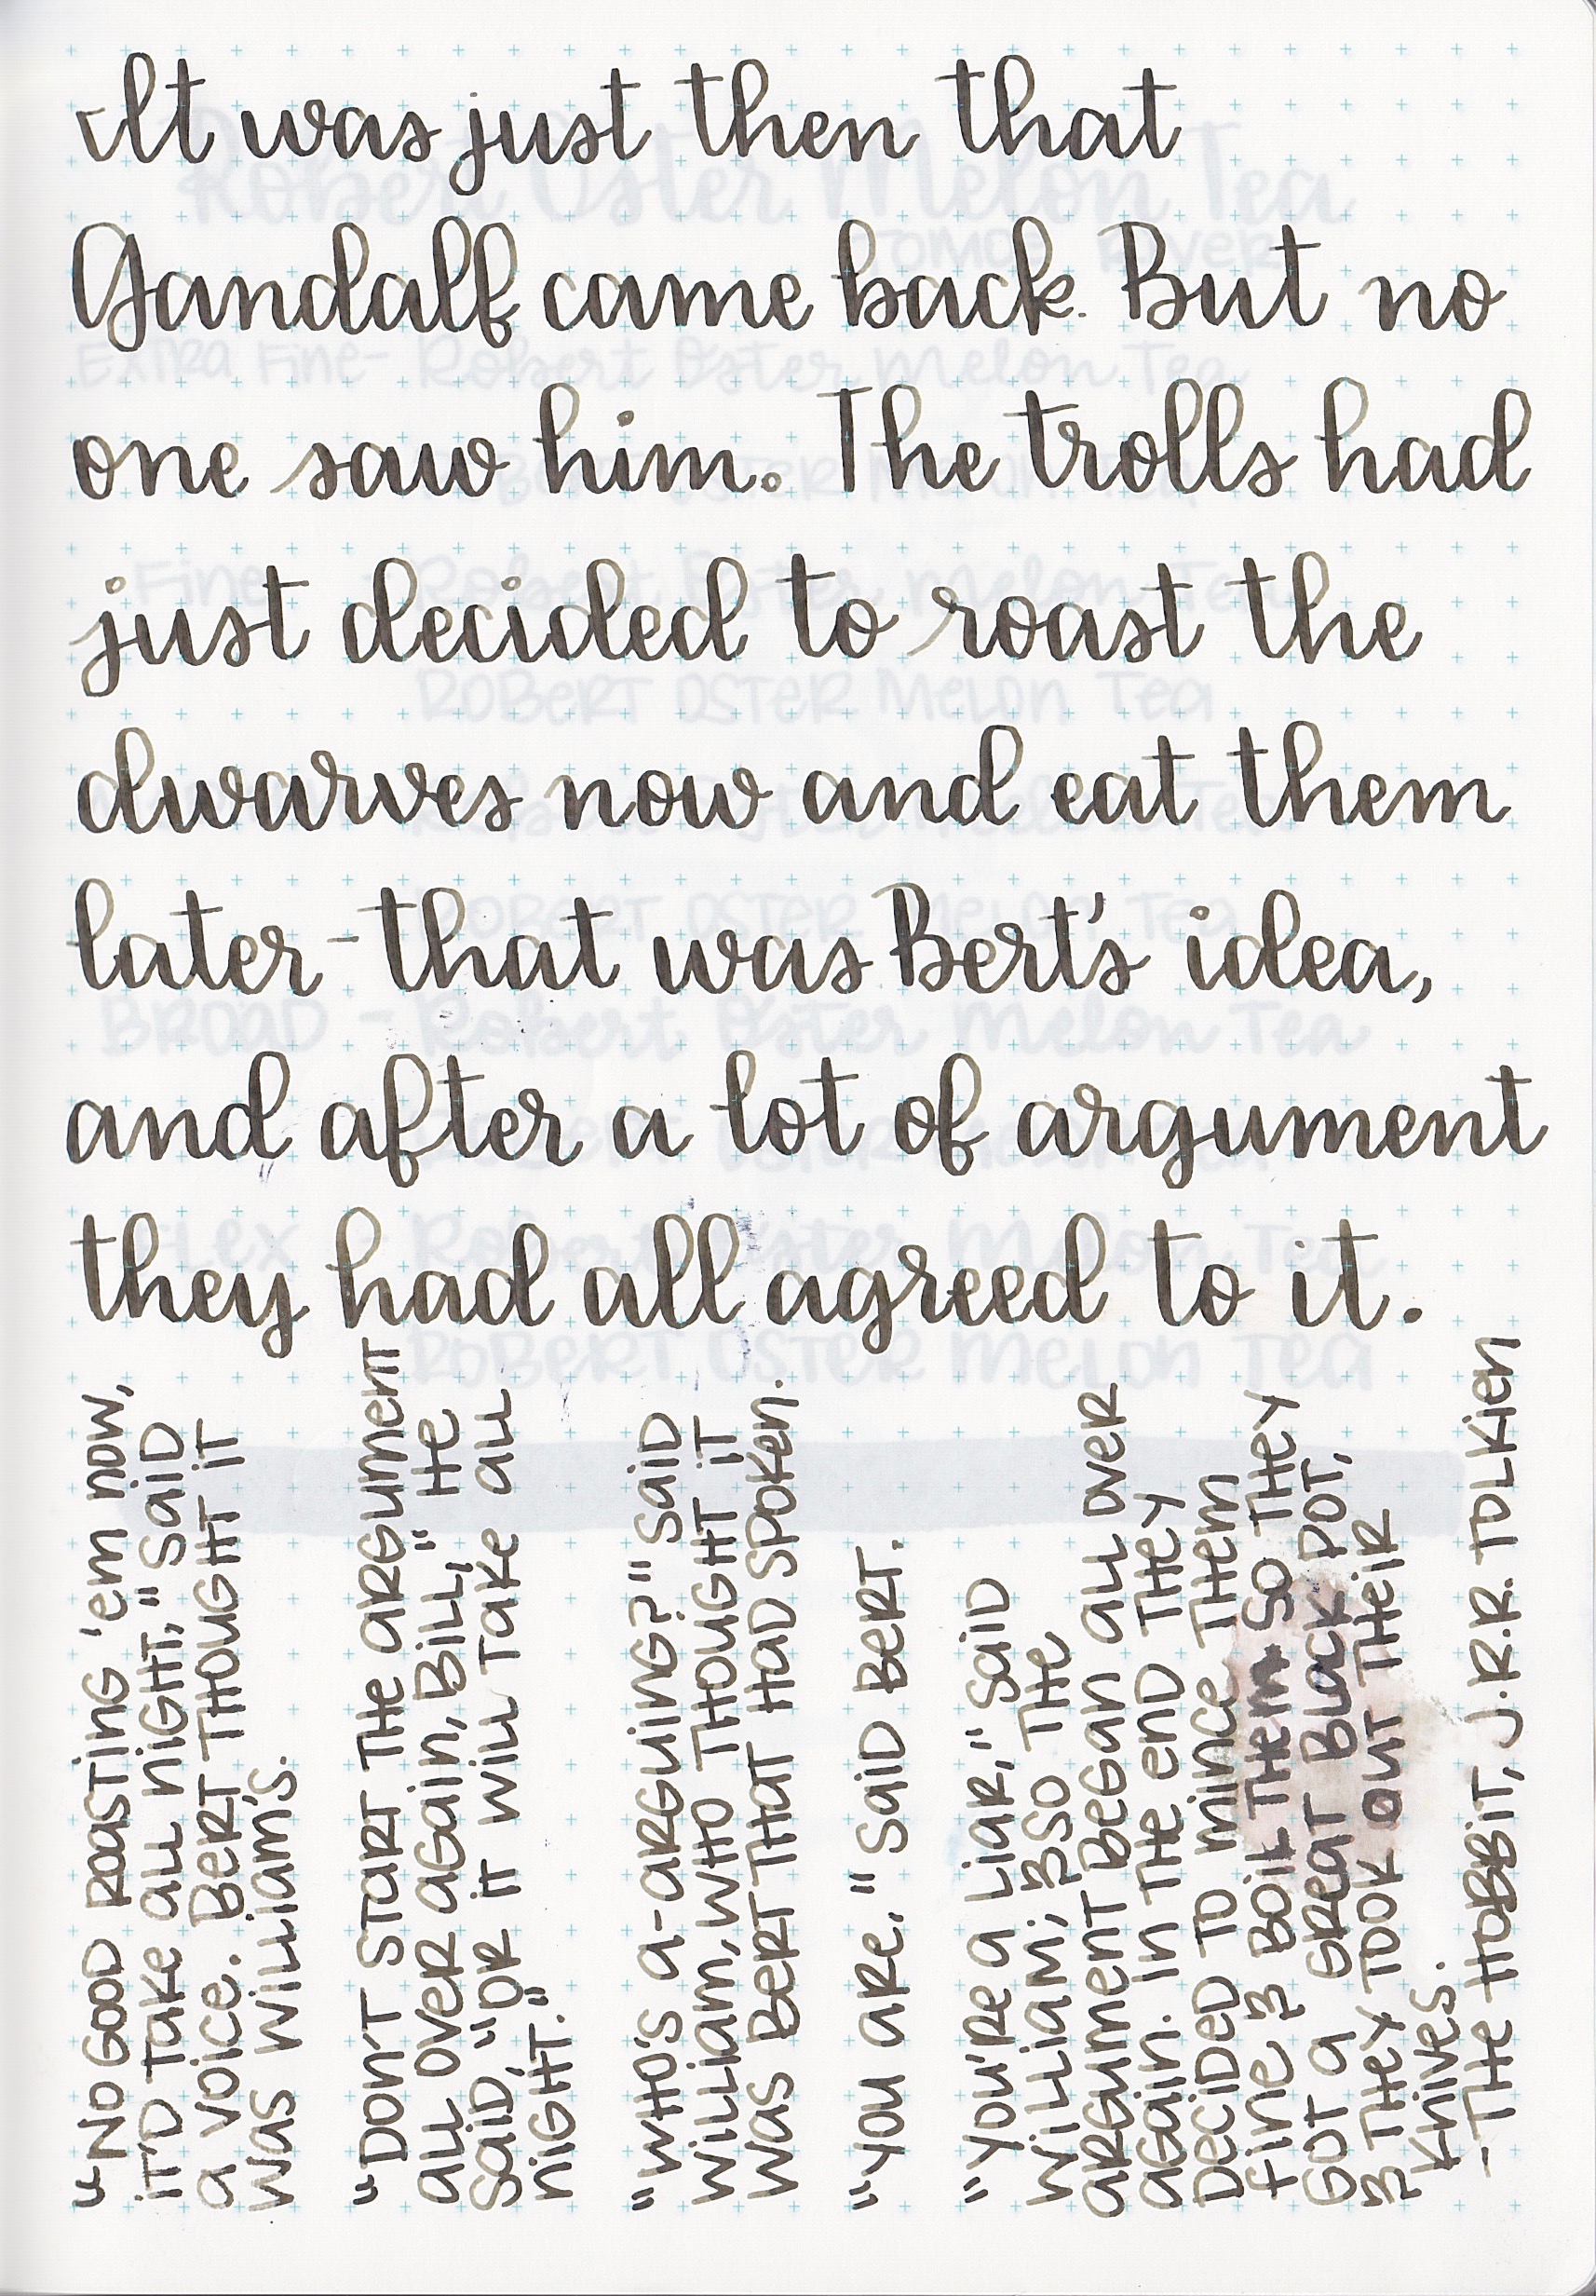 It was just then that
Gandalf came back. But no
one saw him. The trolls had
just decided to roast the
dwarves now and eat them
later - that was Bert's idea,
and after a lot of argument
they had all agreed to it.
"No good roasting 'em now,
it'd take all night," said
a voice. Bert thought it
was William's.
"Don't start the argument
all over again, Bill," he
said, "or it will take all
night."
"Who's a-arguing?" said
William, who thought it
was Bert that had spoken.
"You are." said Bert.
"You're a liar," said
William; & so the
argument began all over
again. In the end they
decided to mince them
fine & boil them so they
got a great black pot,
& they took out their
knives.
- The Hobbit, J.R.R. Tolkien
Robert Oster Melon Tea
Tomoe River
Extra Fine - Robert Oster Melon Tea
Robert Oster Melon Tea
Fine - Robert Oster Melon Tea
Robert Oster Melon Tea
Robert Oster Melon Tea
Robert Oster Melon Tea
Broad - Robert Oster Melon Tea
Robert Oster Melon Tea
Flex - Robert Oster Melon Tea
Robert Oster Melon Tea